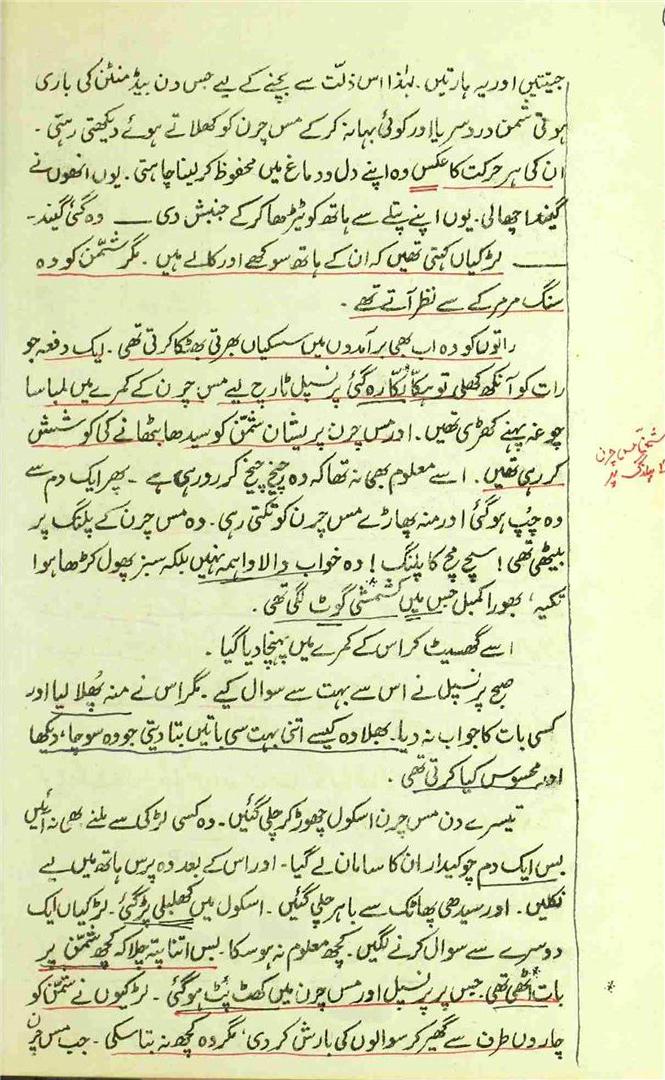 جیتتیں اور یہ ہارتیں۔ لہٰذا اس ذلّت سے بچنے کے لیے جس دن بیڈمنٹن کی باری
ہوتی شمن درد سر یا اور کوئی بہانہ کر کے مس چرن کو کھلاتے ہوئے دیکھتی رہتی۔
ان کی ہر حرکت کا عکس وہ اپنے دل و دماغ میں محفوظ کر لینا چاہتی۔ یوں انھوں نے
گیند اچھالی۔ یوں اپنے پتلے سے ہاتھ کو ٹیڑھا کر کے جنبش دی — وہ گئی گیند۔
— لڑکیاں کہتی تھیں کہ ان کے ہاتھ سوکھے اور کالے ہیں۔ مگر شمّن کو وہ
سنگ مرمر کے سے نظر آتے تھے۔
راتوں کو وہ اب بھی برآمدوں میں سسکیاں بھرتی بھٹکا کرتی تھی۔ ایک دفعہ جو
رات کو آنکھ کھلی تو ہکّا بکّا رہ گئی پرنسپل ٹارچ لیے مس چرن کے کمرے میں لمبا سا
چوغہ پہنے کھڑی تھیں۔ اور مس چرن پریشان شمّن کو سیدھا بٹھانے کی کوشش
کر رہی تھیں۔ اسے معلوم بھی نہ تھا کہ وہ چیخ چیخ کر رو رہی ہے۔ پھر ایک دم سے
وہ چپ ہو گئی اور منہ پھاڑے مس چرن کو تکتی رہی۔ وہ مس چرن کے پلنگ پر
بیٹھی تھی! سچ مچ کا پلنگ! وہ خواب والا واہمہ نہیں بلکہ سبز پھول کڑھا ہوا
تکیہ، بھورا کمبل جس میں کشمشی گوٹ لگی تھی۔
اسے گھسیٹ کر اس کے کمرے میں پہنچا دیا گیا۔
صبح پرنسپل نے اس سے بہت سے سوال کیے۔ مگر اس نے منہ پُھلا لیا اور
کسی بات کا جواب نہ دیا۔ بھلا وہ کیسے اتنی بہت سی باتیں بتا دیتی جو وہ سوچا، دیکھا
اور محسوس کیا کرتی تھی۔
تیسرے دن مس چرن اسکول چھوڑ کر چلی گئیں۔ وہ کسی لڑکی سے ملنے بھی نہ آئیں
بس ایک دم چوکیدار ان کا سامان لے گیا۔ اور اس کے بعد وہ پرس ہاتھ میں لیے
نکلیں۔ اور سیدھی پھاٹک سے باہر چلی گئیں۔ اسکول میں کھلبلی پڑ گئی۔ لڑکیاں ایک
دوسرے سے سوال کرنے لگیں۔ کچھ معلوم نہ ہو سکا۔ بس اتنا پتہ چلا کہ کچھ شمّن پر
بات اٹھی تھی۔ جس پر پرنسپل اور مس چرن میں کھٹ پٹ ہو گئی۔ لڑکیوں نے شمّن کو
چاروں طرف سے گھیر کر سوالوں کی بارش کر دی، مگر وہ کچھ نہ بتا سکی۔ جب مس چرن
مس چرن
پر